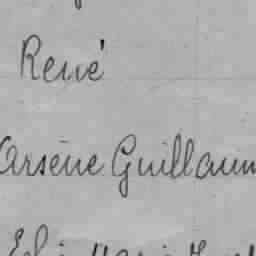 René
Arsène Guillaum